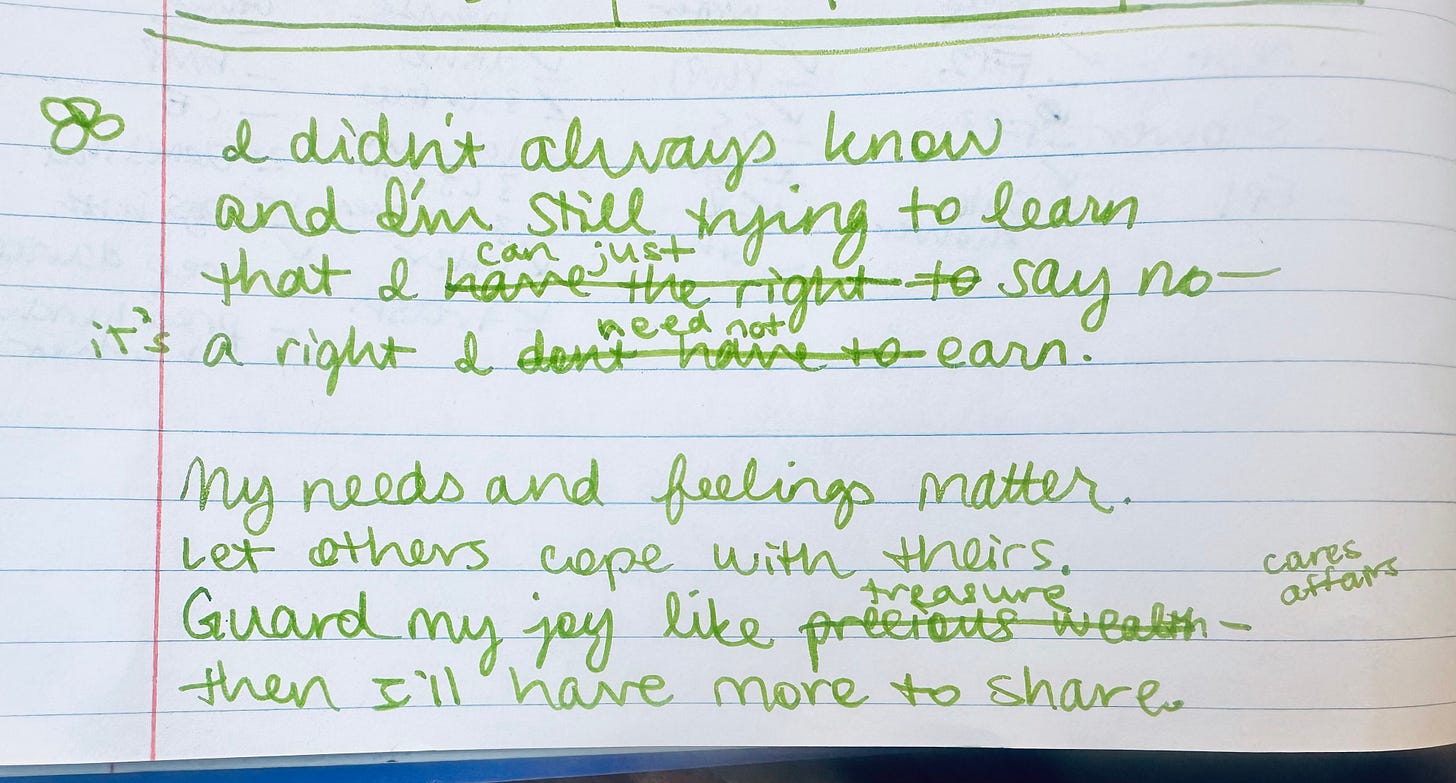 I didn't always know
and I'm still trying to learn
can just
that I have the right to say no—
need not
it's a right I don't have to earn.
My needs and feelings matter.
Let others cope with theirs.
cares
affairs
treasure
Guard my joy like precious wealth—
then I'll have more to share.